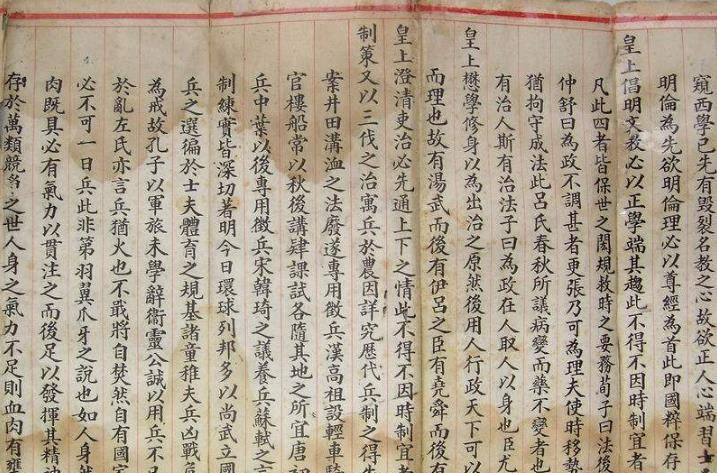 窺西學已先有毀裂名教之心故欲正人心端習士
明倫為先欲明倫理必以尊經為首此即國粹保存
皇上倡明文教必以正學端其趨此不得不因時制宜者
凡此四者皆保世之閎規救時之要務荀子曰法後
仲舒曰為政不調甚者更張乃可為理夫使時移勢
猶拘守成法此呂氏春秋所議病變而藥不變者也
有治人斯有治法子曰為政在人取人以身也臣尤
皇上懋學修身以為出治之原然後用人行政天下可以
而理也故有湯武而後有伊呂之臣有堯舜而後有
皇上澄清吏治必先通上下之情此不得不因時制宜者
制策又以三代之治寓兵於農因詳究歷代兵制之得失
案井田溝洫之法廢遂專用徵兵漢高祖設輕車騎
官樓船常以秋後講肄課試各隨其地之所宜唐初
兵中葉以後專用徵兵宋韓琦之議養兵蘇軾之言
制練實皆深切著明今日環球列邦多以尚武立國
兵之選徧於士夫體育之規基諸童稚夫兵凶戰危
為戒故孔子以軍旅未學辭衛靈公誠以用兵不
於亂左氏亦言兵猶火也不戢將自焚然自有國家
必不可一日兵此非第羽翼爪牙之說也如人身然
肉既具必有氣力以貫注之而後足以發揮其精神
存於萬類競爭之世人身之氣力不足則血肉有壅